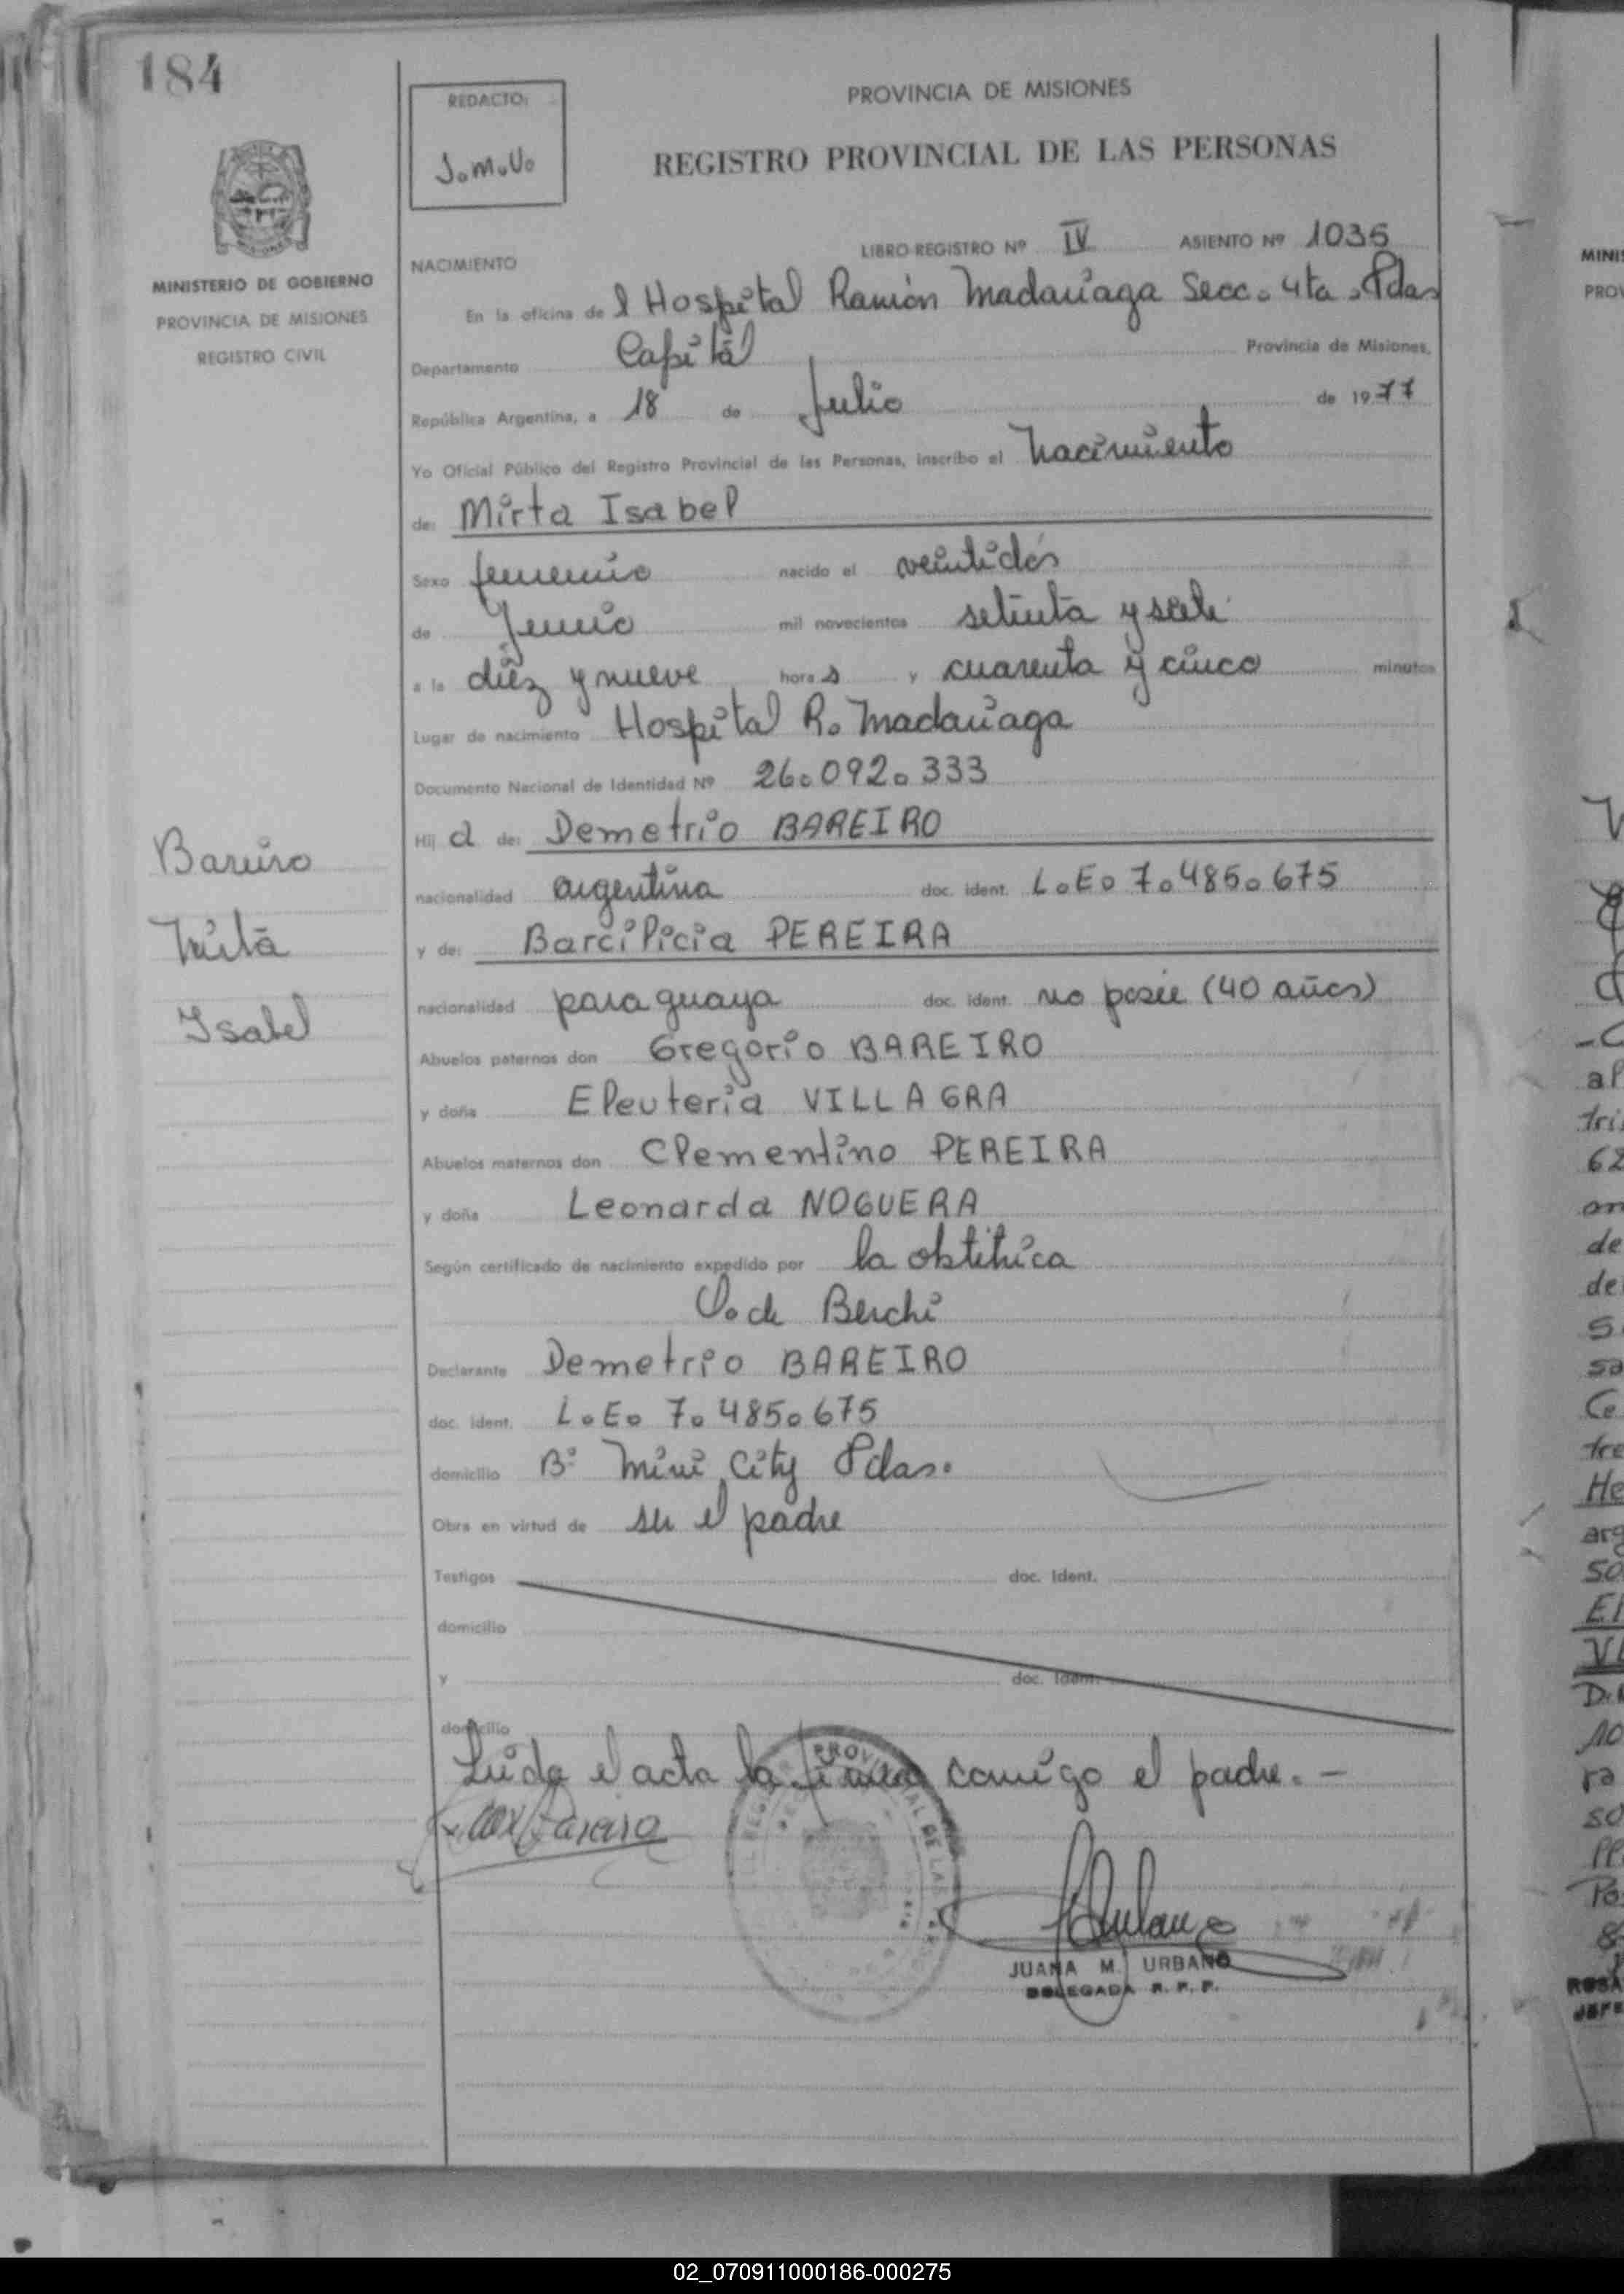 184
REDACTO:
J.M.V.
PROVINCIA DE MISIONES
REGISTRO PROVINCIAL DE LAS PERSONAS
MINISTERIO DE GOBIERNO
PROVINCIA DE MISIONES
REGISTRO CIVIL
LIBRO-REGISTRO Nº IV ASIENTO Nº 1035
NACIMIENTO
En la oficina de l Hospital Ramón Madariaga Secc. 4ta. Pdas
Departamento Capital Provincia de Misiones,
República Argentina, a 18 de Julio de 1977
Yo Oficial Público del Registro Provincial de las Personas, inscribo el Nacimiento
de: Mirta Isabel
Sexo femenino nacido el veintidós
de Junio mil novecientos setenta y siete
a la diez y nueve hora s y cuarenta y cinco minutos
Lugar de nacimiento Hospital R. Madariaga
Documento Nacional de Identidad Nº 26.092.333
Hij a de: Demetrio BAREIRO
nacionalidad argentina doc. ident. L.E. 7.485.675
y de: Barcilicia PEREIRA
nacionalidad paraguaya doc. ident. no posee (40 años)
Abuelos paternos don Gregorio BAREIRO
y doña Eleuteria VILLAGRA
Abuelos maternos don Clementino PEREIRA
y doña Leonarda NOGUERA
Según certificado de nacimiento expedido por la obstétrica
V. de Berchi
Declarante Demetrio BAREIRO
doc. ident. L.E. 7.485.675
domicilio Bº Mini City Pdas.
Obra en virtud de ser el padre
Testigos doc. Ident.
domicilio
y doc. Ident.
domicilio
Leída el acta la firma conmigo el padre. -
Bareiro
Mirta
Isabel
JUANA M. URBANO
DELEGADA R. P. P.
02_070911000186-000275